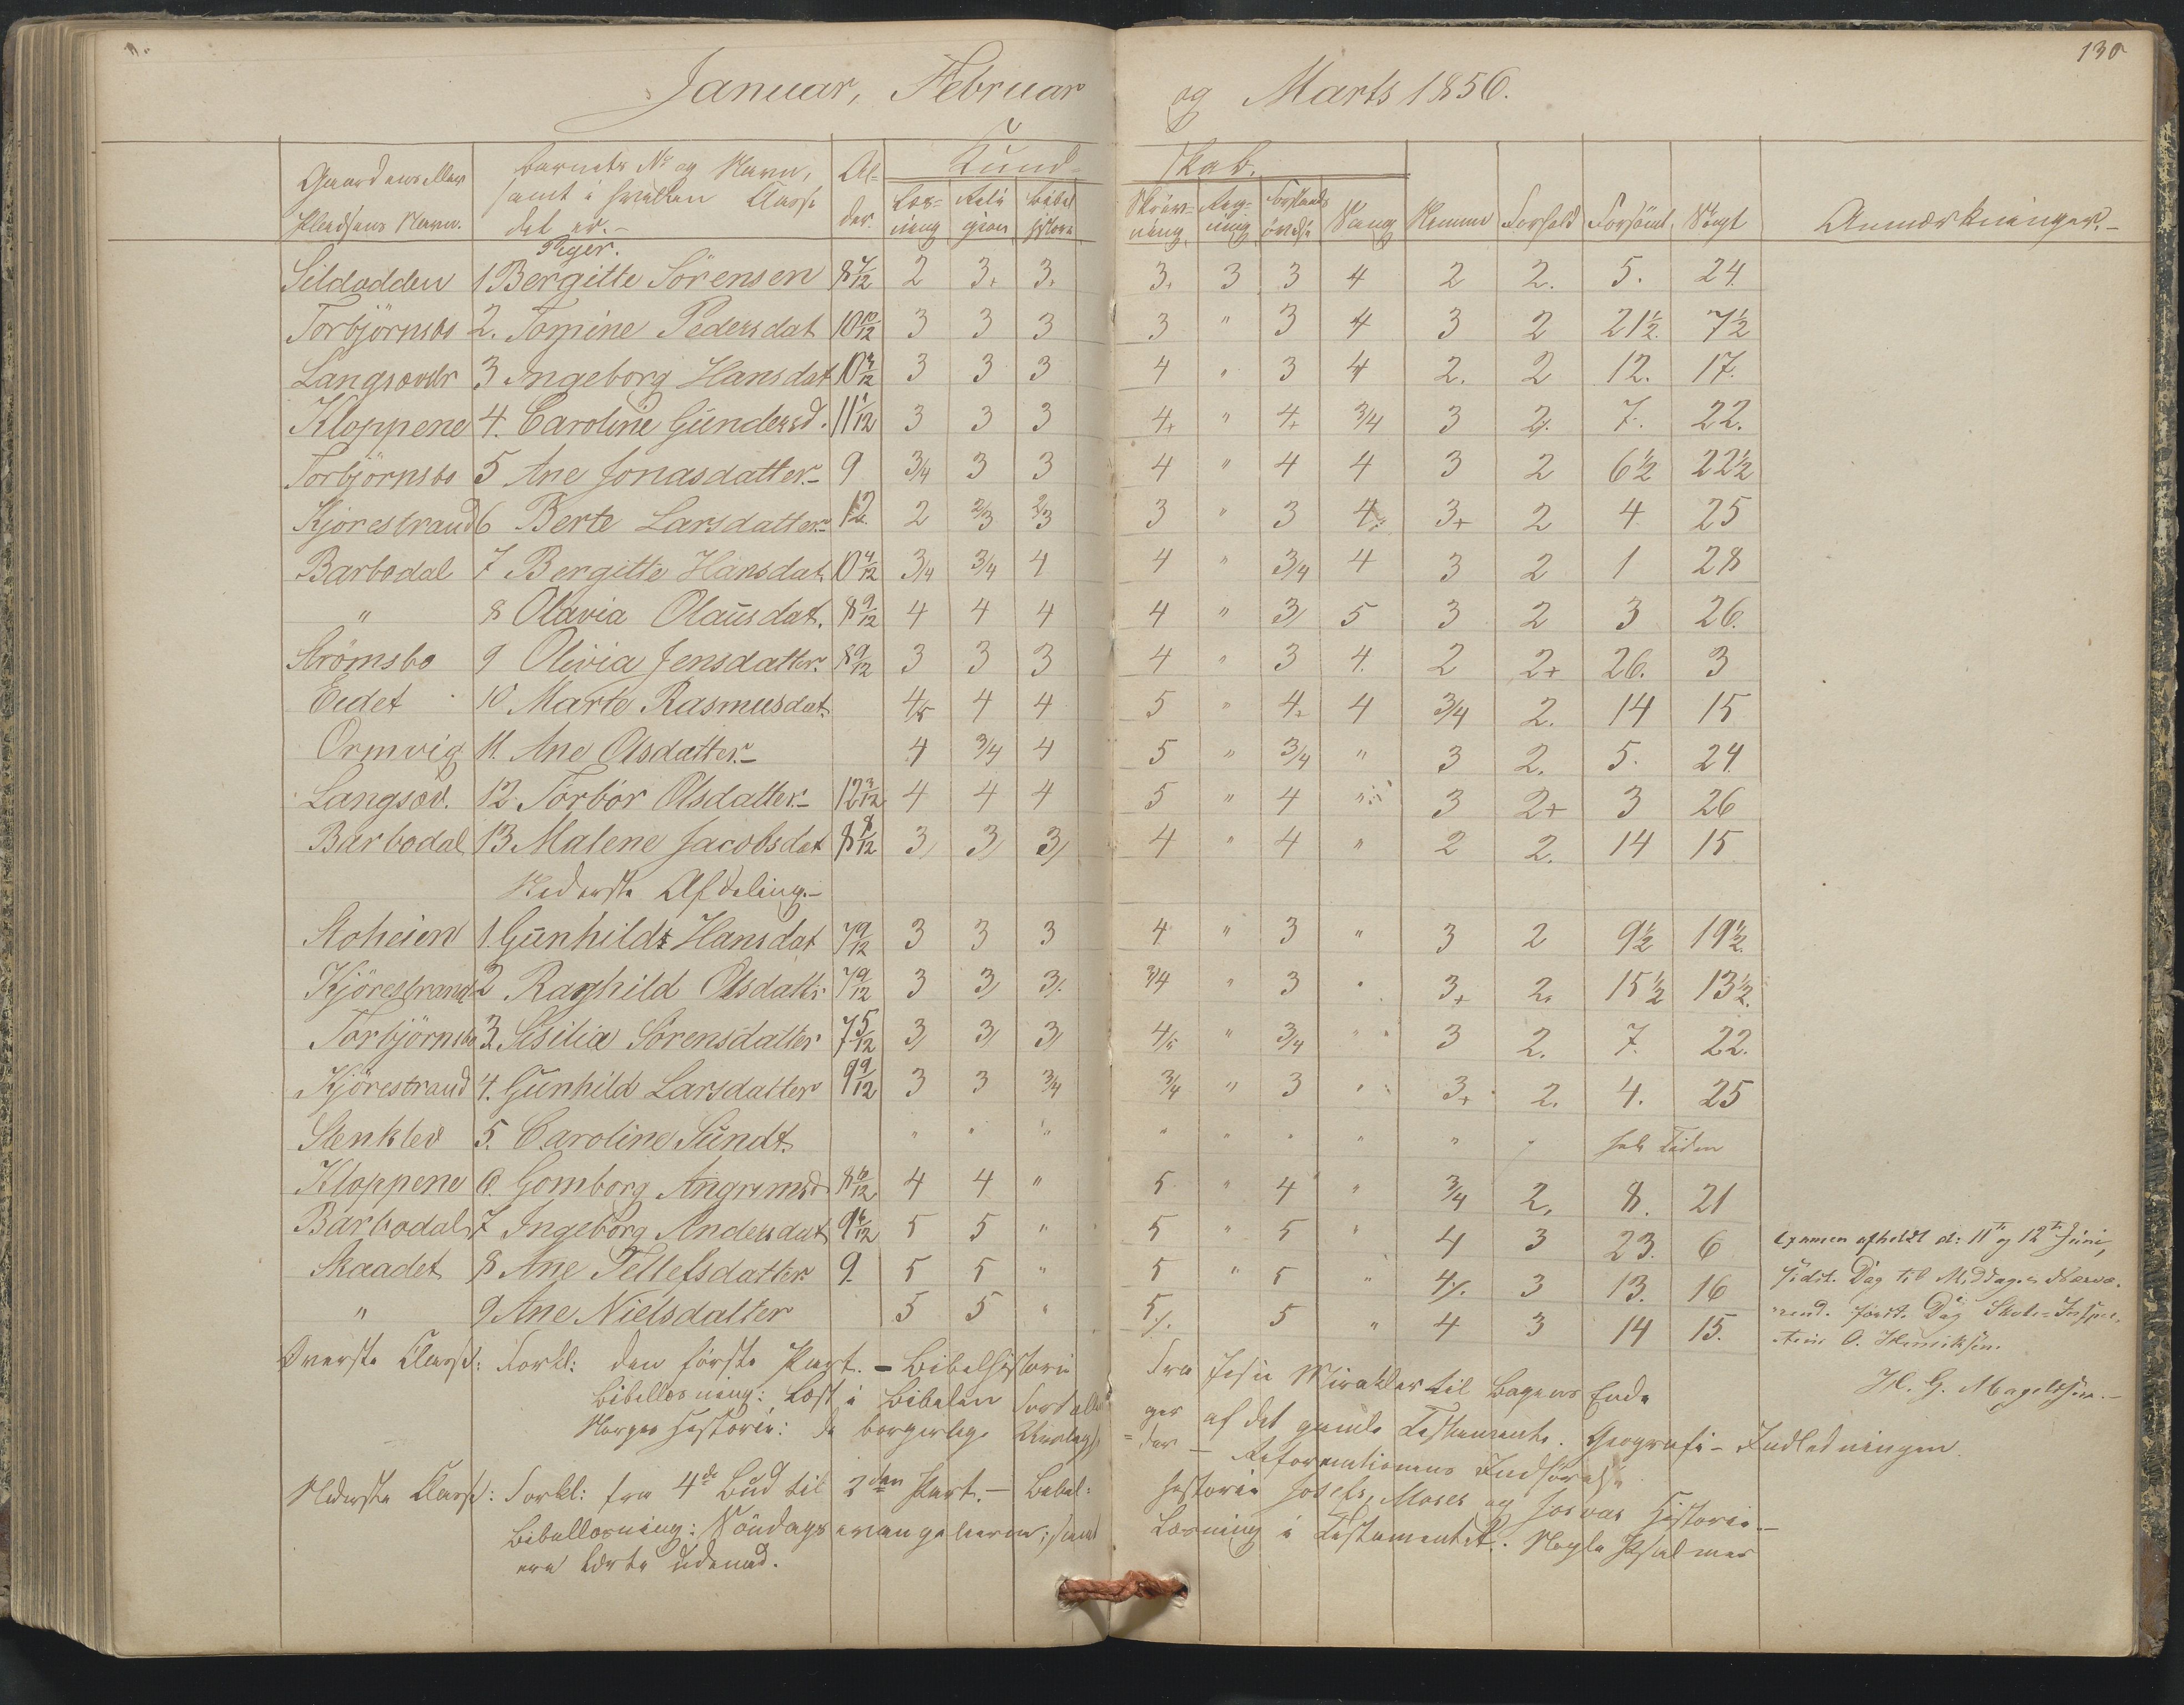 130
Januar, Februar og Marts 1856.
Gaardens eller Pladsens Navn. Barnets No og Navn, samt i hvilken Classe det er.- Al-der. Kund-skab. Anmærkninger.-
Læs-ning Reli gion Bibel histori Skriv-ning Reg-ning Forstands övelse Sang Nemme Forhold Forsömt Sögt
Piger.
Sildodden 1 Bergitte Sörensen 8 7/12 2 3+ 3. 3+ 3 3 4 2 2. 5. 24.
Torbjörnsbo 2. Tomine Pedersdat 10 10/12 3 3 3 3 " 3 4 3 2 21½. 7½
Langsæver 3 Ingeborg Hansdat 10 4/12 3 3 3 4 " 3 4 2. 2 12. 17.
Kloppene 4. Caroline Gundersd. 11 1/12 3 3 3 4+ " 4+ 3/4 3 2. 7. 22.
Torbjörnsbo 5 Ane Jonasdatter.- 9 3/4 3 3 4 " 4 4 3 2 6½ 22½
Kjörestrand 6 Berte Larsdatter.- 12. 2 2/3 2/3 3 " 3 4. 3+ 2 4 25
Barbodal 7 Bergitte Hansdat. 10 4/12 3/4 3/4 4 4 " 3/4 4 3 2 1 28
" 8 Olavia Olausdat. 8 9/12 4 4 4 4 " 3/ 5 3 2 3 26.
Strömsbo 9 Olivia Jensdatter. 8 9/12 3 3 3 4 " 3 4. 2 2+ 26. 3
Eidet 10 Marte Rasmusdat. 4/5 4 4 5 " 4+ 4 3/4 2. 14 15
Ormvig 11. Ane Olsdatter.- 4 3/4 4 5 " 3/4 " 3 2. 5. 24.
Langsæv. 12 Torbor Olsdatter.- 12 3/12 4 4 4 5 " 4 " 3 2+ 3 26
Barbodal 13 Malene Jacobsdat 8 8/12 3/ 3/ 3/ 4 " 4 " 2 2. 14 15
Nederste Afdeling.-
Stoheien 1. Gunhild Hansdat 7 9/12 3 3 3 4 " 3 " 3 2 9½ 19½.
Kjörestrand 2 Raghild Olsdattr 7 9/12 3 3/ 3/. 3/4 " 3 " 3+ 2. 15½ 13½.
Torbjörnsbo 3. Sisilia Sörensdatter 7 5/12 3/ 3/ 3/ 4/5 " 3/4 " 3 2. 7. 22.
Kjörestrand 4. Gunhild Larsdatter 9 9/12 3 3 3/4 3/4 " 3 " 3+ 2. 4. 25
Stenklev 5. Caroline Sundt. " " " " " " " " " hele Tiden
Kloppene 6. Gomborg Angrimsd 8 10/12 4 4 " 5 " 4 " 3/4 2. 8. 21
Barbodal 7 Ingeborg Andersdat 9 6/12 5 5 " 5 " 5 " 4 3 23. 6
Skaadet 8 Ane Tellefsdatter 9. 5 5 " 5 " 5 " 4/. 3 13. 16
" 9 Ane Nielsdatter 5 5 " 5/. 5 " 4 3 14 15.
Examen afholdt d: 11te og 12te Juni,
sidst. Dag til Middag. Nærvæ-
rend. först. Dag Skole-Inspec-
teur O. Henriksen.
H. G. Magelssen.-
Överste Classe: Forkl: den förste Part. - Bibelhistorie fra Jesu Mirakler til Bogens Ende
Bibellæsning: Læst i Bibelen af det gamle Testamente. Geografi - Indledningen.
Norges historie: De borgerlige - Reformationens Indförelse
Nederste Classe: Forkl: fra 4de Bud til 2den Part. - Bibel: historie Josefs, Moses og Josvas Historie.-
Bibellæsning: Söndagsevangelierne; samt Læsning i Testamentet. Nogle Psalmer
ere lærte udenad.